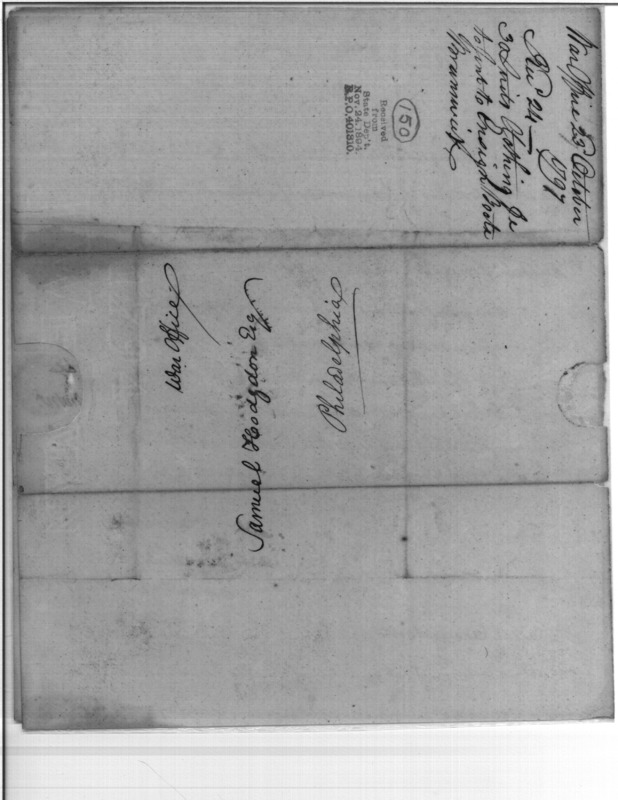 War Office 23 October
1797
Recd 24
30 Suits Clothing &c
to Sent to Ensign Poote
Brunswick
150
Received
from
State Dep't.
Nov. 24, 1894.
R.P.O. 401810.
War Office
Samuel Hodgdon Esq
Philadelphia